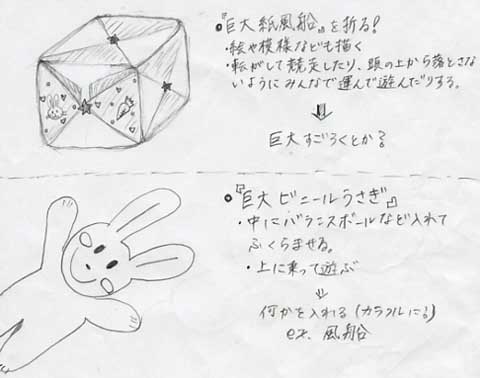 『巨大紙風船』を折る!
・絵や模様なども描く
・転がして競走したり、頭の上から落とさな
いようにみんなで運んで遊んだりする。
⇓
巨大すごろくとか?
『巨大ビニールうさぎ』
・中にバランスボールなど入れて
ふくらませる。
・上に乗って遊ぶ
⇓
何かを入れる(カラフルに?)
ex. 風船